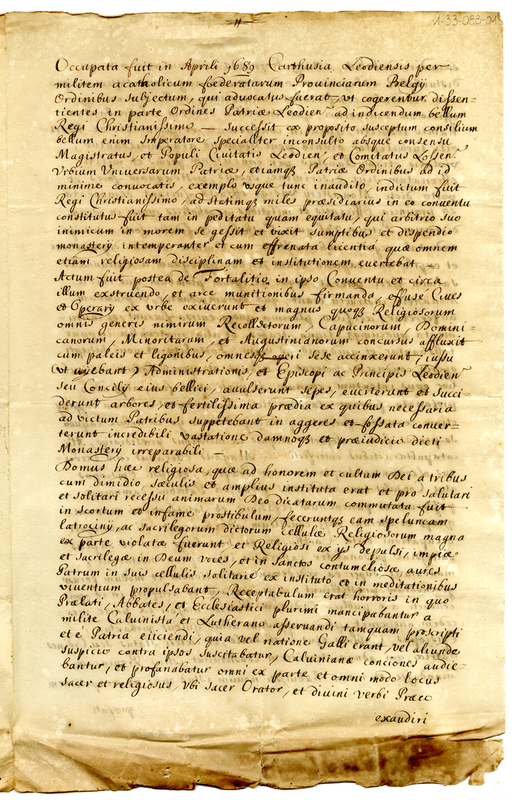 1-33-088-01
Occupata fuit in Aprili 1689 Carthusia Leodiensis per
militem acatholicum fœderatarum Provinciarum Belgÿ
Ordinibus subjectum, qui advocatus fuerat, vt cogerentur dissen-
tientes in parte Ordines Patriæ Leodien ad indicendum bellum
Regi Christianissimo — successit ex proposito susceptum consilium
bellum enim Imperatore specialiter inconsulto absque consensu
Magistratus, et Populi Civitatis Leodien, et Comitatus Lossen
Vrbium Vniversarum Patriæ, etiamq Patriæ Ordinibus ad id
minime convocatis, exemplo vsque tunc inaudito, indictum fuit
Regi Christianissimo, ad statimq miles præsidiarius in eo conventu
constitutus fuit tam in peditatu quam equitatu, qui arbitrio suo
inimicum in morem se gessit et vixit sumptibus et despendio
monasterÿ intemperanter et cum effrenata licentia quæ omnem
etiam religiosam disciplinam et institutionem euertebat
Actum fuit postea de Fortalitio in ipso Conventu et circa
illum exstruendo et arce munitionibus firmanda, effusè Ciues
et Operarÿ ex vrbe exiuerunt et magnus quoq Religiosorum
omnis generis nimirum Recollectorum, Capucinorum, Domini-
canorum, Minoritarum, et Augustinianorum concursus affluxit
cum paleis et ligonibus, omnesq operi sese accinxerunt, iussu
(vt aiebant) Administrationis, et Episcopi ac Principis Leodien
seu Concilÿ eius bellici, avulserunt sepes, euciterunt et succi-
derunt arbores, et fertilissima prædia ex quibus necessaria
ad victum Patribus suppetebant in aggeres et fossata conver-
terunt incredibili vastatione damnoq et præiudicio dicti
Monasterÿ irreparabili —
Domus hæc religiosa, quæ ad honorem et cultum Dei a tribus
cum dimidio, sæculis et amplius instituta erat et pro salutari
et solitari recessu animarum Deo dicatarum commutata fuit
in scortum et infame prostibulum, feceruntq eam speluncam
latrocinÿ, ac sacrilegorum dictorum cellulæ Religiosorum magna
ex parte violatæ fuerunt, et Religiosi ex ÿs depulsi, impiæ
et sacrilegæ in Deum voces, et in sanctos contumeliosæ, aures
Patrum in suis cellulis solitariè ex instituto et in meditationibus
viventium propulsabant, Receptabulum erat horroris in quo
Prælati, Abbates, et Ecclesiastici plurimi mancipabantur a
milite Calvinista et Lutherano asservandi tamquam proscripti
et è Patria eiiciendi, quia vel natione Galli erant, vel aliunde
suspicio contra ipsos suscitabatur, Calvinianæ conciones audie-
bantur, et profanabatur omni ex parte et omni modo locus
sacer et religiosus, vbi sacer Orator, et divini verbi Præco
exaudiri